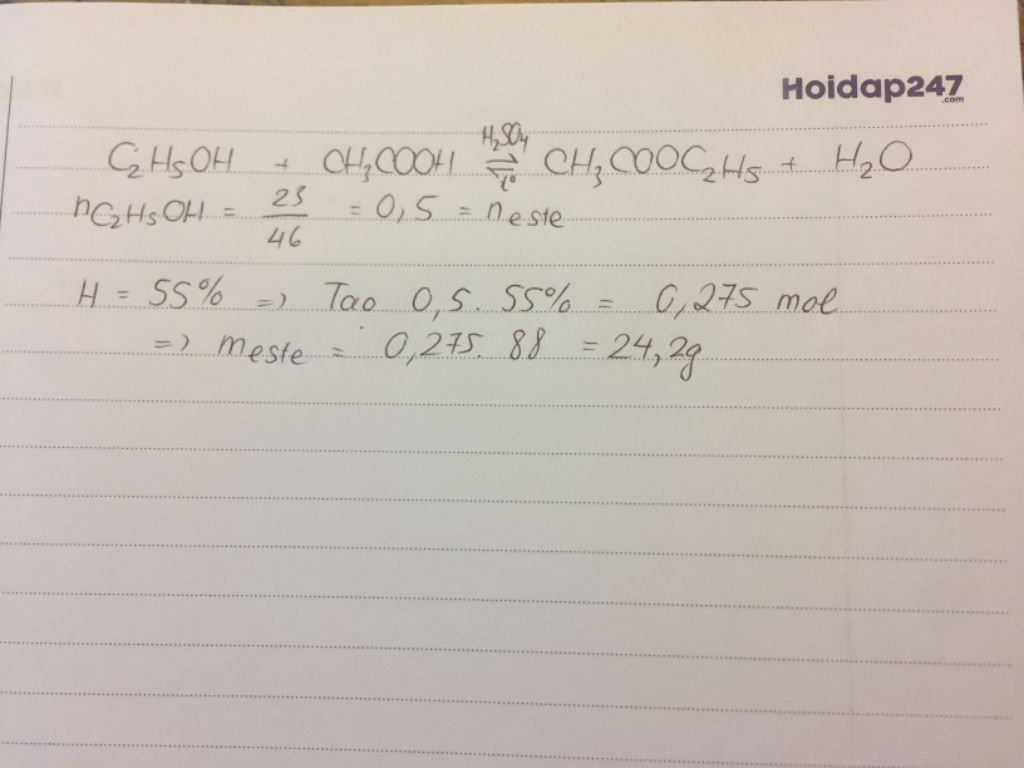 Hoidap247
.com
C2H5OH + CH3COOH ⇌ H2SO4 t° CH3COOC2H5 + H2O
nC2H5OH = 23/46 = 0,5 = neste
H = 55% => Tạo 0,5. 55% = 0,275 mol
=> meste = 0,275. 88 = 24,2g